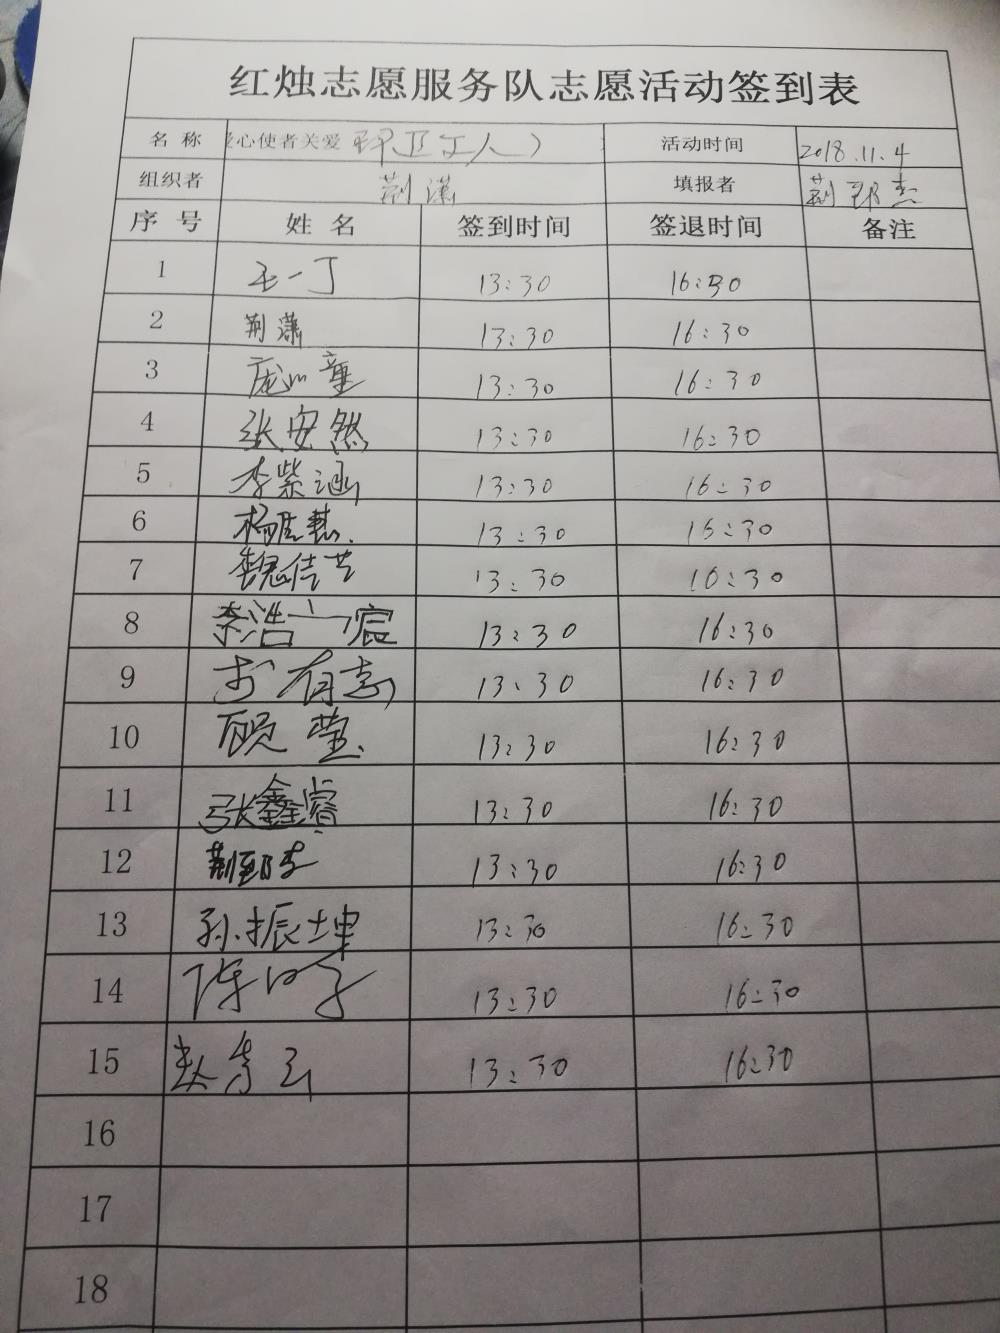 红烛志愿服务队志愿活动签到表
名 称 爱心使者关爱 环卫工人） 活动时间 2018.11.4
组织者 荆潇 填报者 荆郅杰
序 号 姓 名 签到时间 签退时间 备注
1 王一丁 13:30 16:30
2 荆潇 13:30 16:30
3 庞 童 13:30 16:30
4 张安然 13:30 16:30
5 李紫涵 13:30 16:30
6 杨 慧 13:30 16:30
7 魏佳芸 13:30 16:30
8 李浩宸 13:30 16:30
9 有志 13:30 16:30
10 顾莹 13:30 16:30
11 张鑫睿 13:30 16:30
12 荆郅杰 13:30 16:30
13 孙振坤 13:30 16:30
14 陈 子 13:30 16:30
15 赵 13:30 16:30
16
17
18